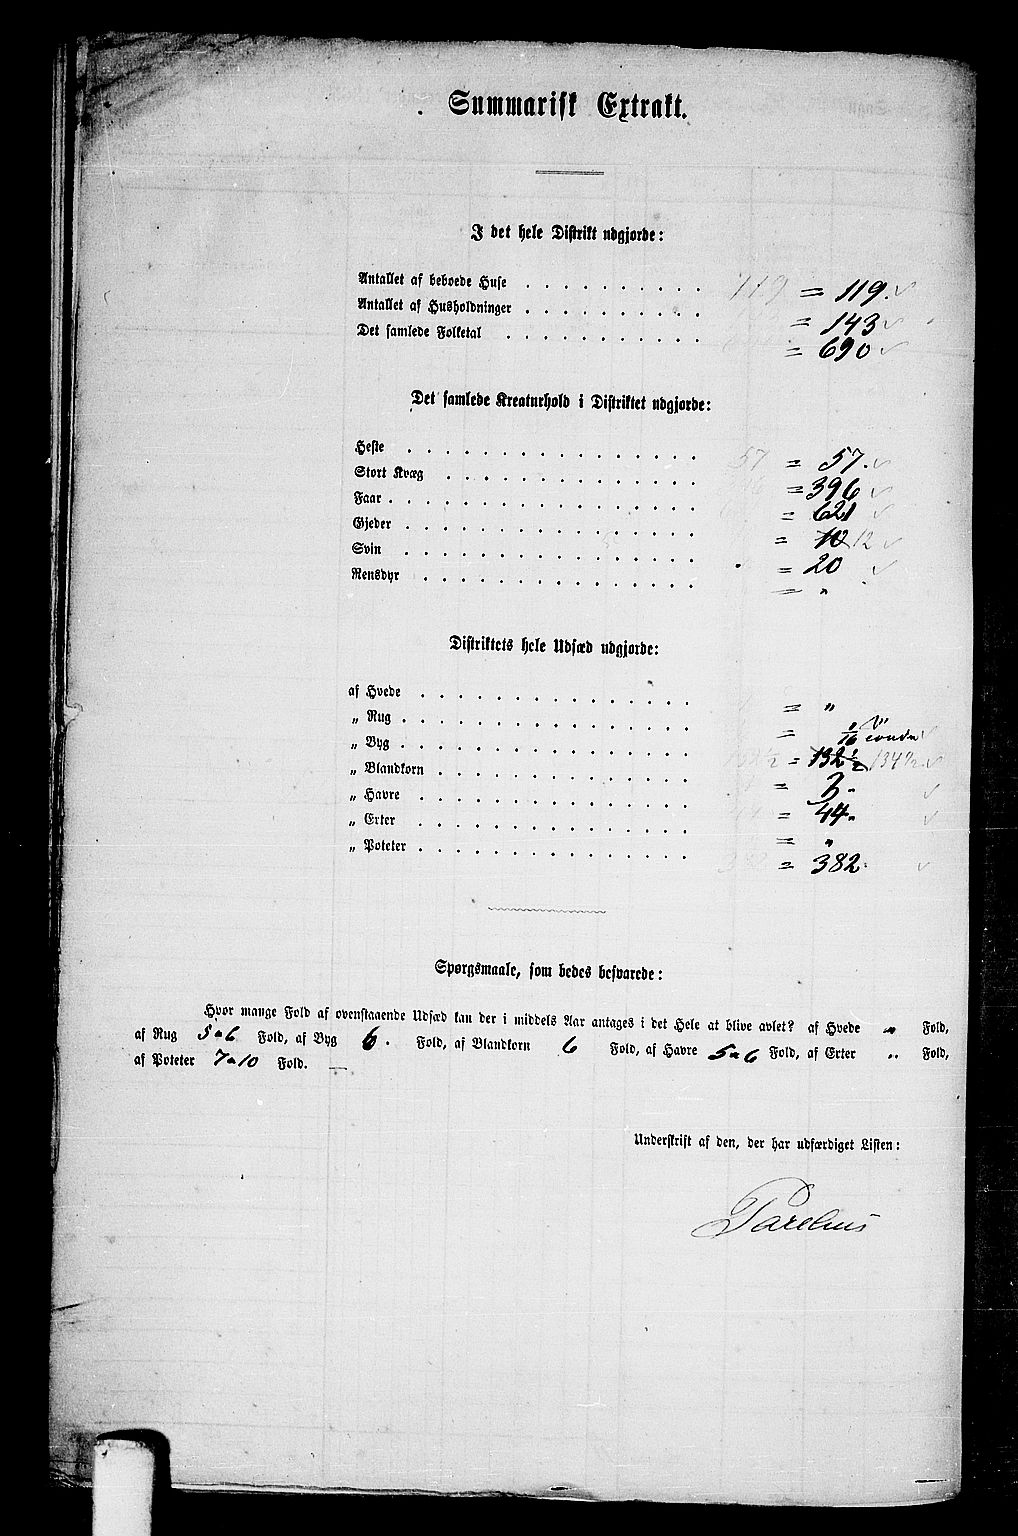 Summarisk Extrakt.
I det hele Distrikt udgjorde:
Antallet af beboede Huse . . . . . . . . . . 119 = 119.
Antallet af Husholdninger . . . . . . . . . . = 143
Det samlede Folketal . . . . . . . . . . . = 690
Det samlede Kreaturhold i Distriktet udgjorde:
Heste . . . . . . . . . . . . . . . . 57 = 57.
Stort Kvæg . . . . . . . . . . . . . . = 396
Faar . . . . . . . . . . . . . . . . . = 621
Gjeder . . . . . . . . . . . . . . . . = 10 12
Svin . . . . . . . . . . . . . . . . = 20
Rensdyr . . . . . . . . . . . . . . . = "
Distriktets hele Udsæd udgjorde:
af Hvede . . . . . . . . . . . . . . = "
„ Rug . . . . . . . . . . . . . . . = 1/16
„ Byg . . . . . . . . . . . . . . . = 132 1/2 134 1/2
„ Blandkorn . . . . . . . . . . . . . = 3 "
„ Havre . . . . . . . . . . . . . . = 44 "
„ Erter . . . . . . . . . . . . . . = "
„ Poteter . . . . . . . . . . . . . . = 382
Spørgsmaale, som bedes besvarede:
Hvor mange Fold af ovenstaaende Udsæd kan der i middels Aar antages i det Hele at blive avlet? af Hvede " Fold,
af Rug 5 a 6 Fold, af Byg 6. Fold, af Blandkorn 6 Fold, af Havre 5 a 6 Fold, af Erter " Fold,
af Poteter 7 a 10 Fold.
Underskrift af den, der har udfærdiget Listen: